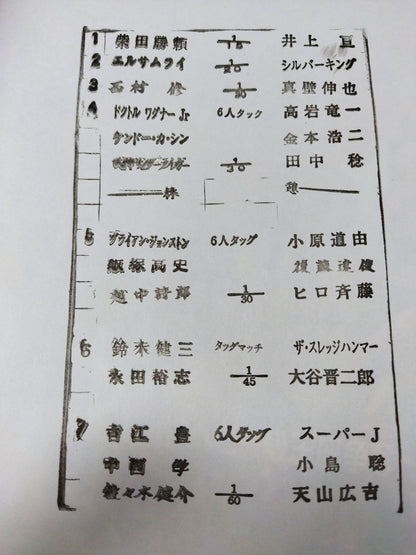 1 柴田勝頼 1/15 井上亘
2 エルサムライ 1/20 シルバーキング
3 西村修 1/30 真壁伸也
4 ドクトルワグナーJr 6人タック 高岩竜一
ケンドー・カ・シン 金本浩二
サンダーライガー 1/30 田中稔
――休 憩――
5 ブライアン・ジョンストン 6人タッグ 小原道由
飯塚高史 後藤達俊
越中詩郎 1/30 ヒロ斉藤
6 鈴木健三 タッグマッチ ザ・スレッジハンマー
永田裕志 1/45 大谷晋二郎
7 吉江豊 6人タッグ スーパーJ
中西学 小島聡
佐々木健介 1/60 天山広吉